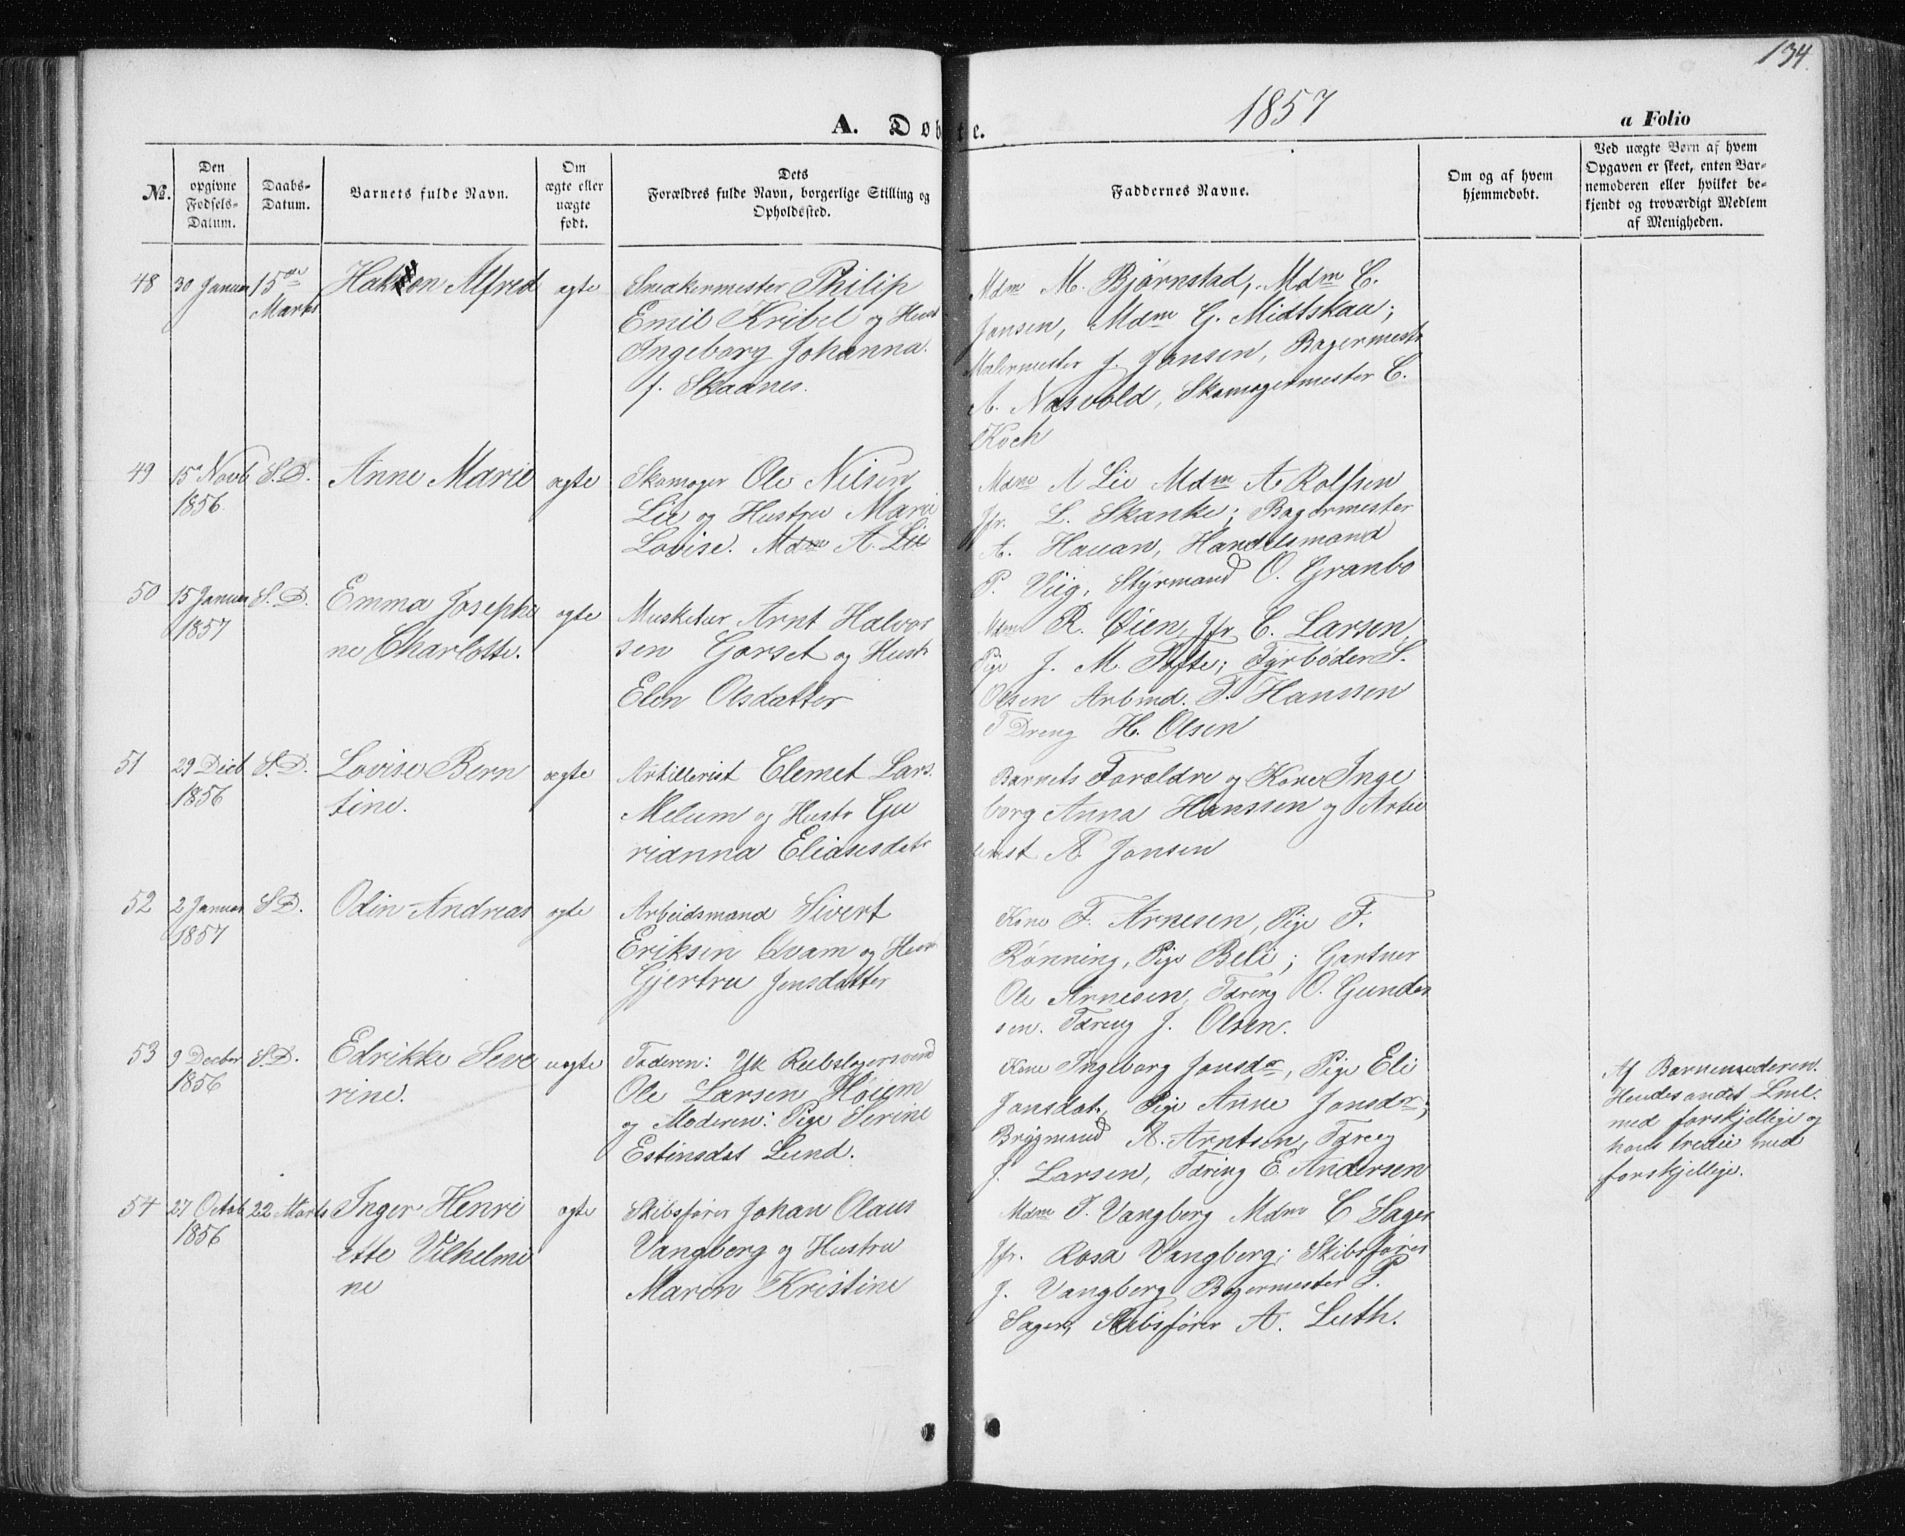 134
A. Døbte.
1857
a Folio
№.
Den opgivne Fødsels-Datum.
Daabs-Datum.
Barnets fulde Navn.
Om ægte eller uægte født.
Dets Forældres fulde Navn, borgerlige Stilling og Opholdssted.
Faddernes Navne.
Om og af hvem hjemmedøbt.
Ved uægte Børn af hvem Opgaven er skeet, enten Barnemoderen eller hvilket bekjendt og troværdigt Medlem af Menigheden.
48
30 Januar
15de
Marts
Hakon Alfred
ægte
Snedkermester Philip
Emil Kribel og Hust
Ingeborg Johanna
f. Skaanes.
Mdm M. Bjørnstad, Mdm C.
Jansen, Mdm G. Midtskau;
Malermester J. Jansen, Bagermest
A. Næsvold, Skomagermester C.
Koch
49
15 Novb
1856.
S. D.
Anne Marie
ægte
Skomager Ole Nilsen
Lie og Hustru Marie
Lovise. Mdm A. Lie
Mdm A Lie Mdm A Rolfsen
Jfr. L. Skanke; Bagermester
A. Hauan, Handelsmand
P. Viig, Styrmand O. Granbo
50
15 Januar
1857
S. D.
Emma Josephi
ne Charlotte.
ægte
Musketer Arnt Halvor
sen Gorset og Hustr
Elen Olsdatter
Mdm R. Øien, Jfr C. Larsen,
Pige J. M. Tofte; Fyrbøder S.
Olsen Arbmd. P. Hanssen
Dreng H. Olsen
51
29 Decb
1856
S. D.
Lovise Bern
tine.
ægte
Artillerist Clemet Lars.
Melum og Hustr Gu
rianna Eliasesdatr
Barnets Forældre og Kone Inge
borg Anna Hanssen og Artil
lerist A. Jansen
52
2 Januar
1857
S. D.
Odin Andreas
ægte
Arbeidsmand Sivert
Eriksen Qvam og Hustr
Gjertru Jensdatter
Kone F. Arnesen, Pige F.
Rønning, Pige Beli; Gartner
Ole Arnesen, Tdreng O. Gunder
sen. Tdreng J. Olsen.
53
9 Decbr
1856
S. D.
Edrikke Seve
rine.
uægte
Faderen: Uk Reebslagersvend
Ole Larsen Høiem
og Moderen: Pige Serine
Estinsdat Lund.
Kone Ingeborg Jonsdr, Pige Eli
Jonsdat, Pige Anne Jonsdr;
Brygmand A. Arntsen, Tdreng
J. Larsen, Tdreng E. Andersen
Af Barnemoderen.
Hendes andet Leml.
med forskjellige og
hans tredie med
forskjellige.
54
27 Octob
1856
22 Marts
Inger Henri
ette Vilhelmi
ne
ægte
Skibsfører Johan Olaus
Vangberg og Hustru
Maren Kristine
Mdm T. Vangberg Mdm C Sager
Jfr. Rosa Vangberg; Skibsfører
J. Vangberg Bagermester P.
Sager, Skibsfører A. Luth.